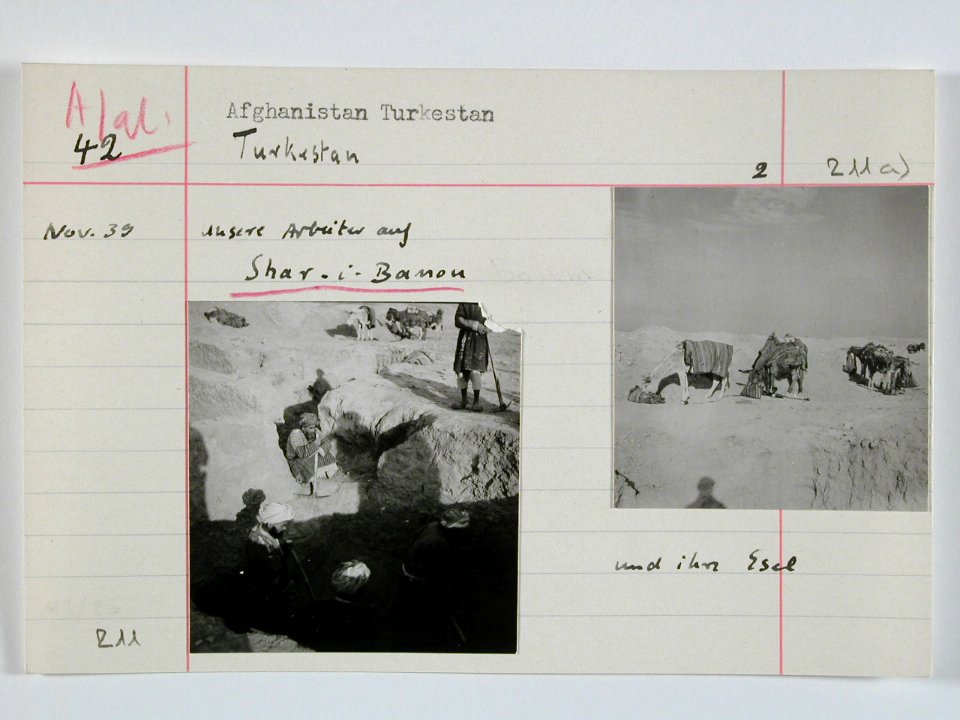 Afgh.
42
Afghanistan Turkestan
Turkestan
2
211a)
Nov. 39
unsere Arbeiter auf
Shar-i-Banou
und ihre Esel
211